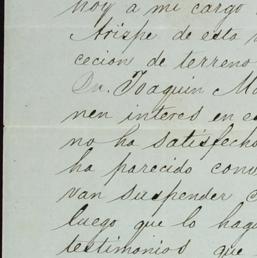 hoy a mi cargo
Arispe de esta
cecion de terreno
Dn. Joaquin Mo
nen interes en es
no ha satisfecho
ha parecido conv
van suspender
luego que lo haga
testimonios que